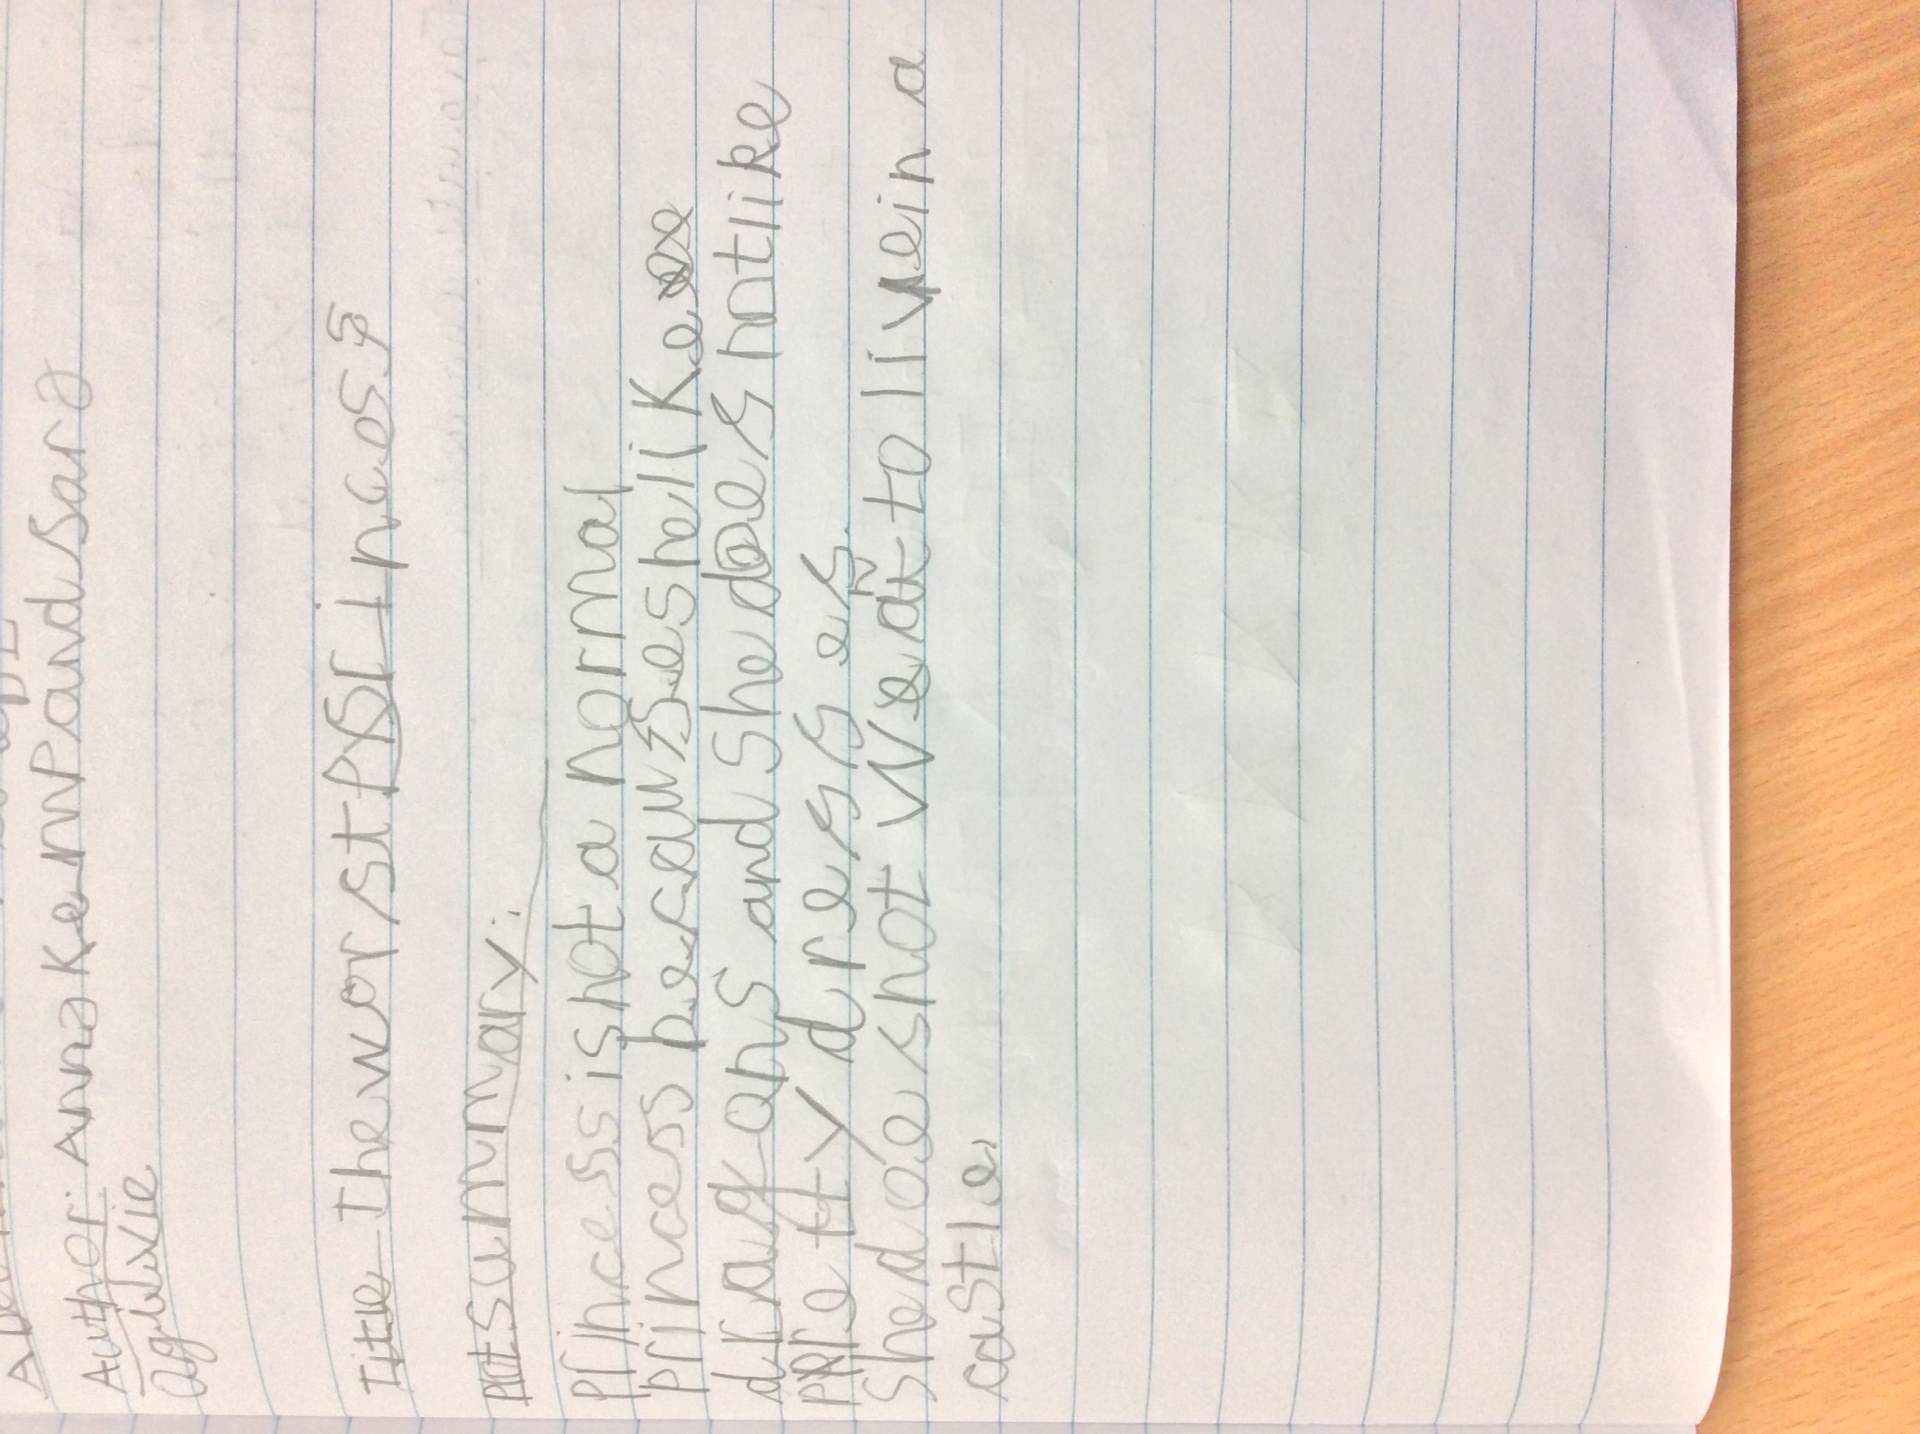 Author: Anna Kemp and Sara
Ogilvie
Title The worst Princess
Plot summary:
Princess is not a normal
princess because she like
dragons and she does not like
Pretty dresses.
She doe snot Weat to live in a
castle.